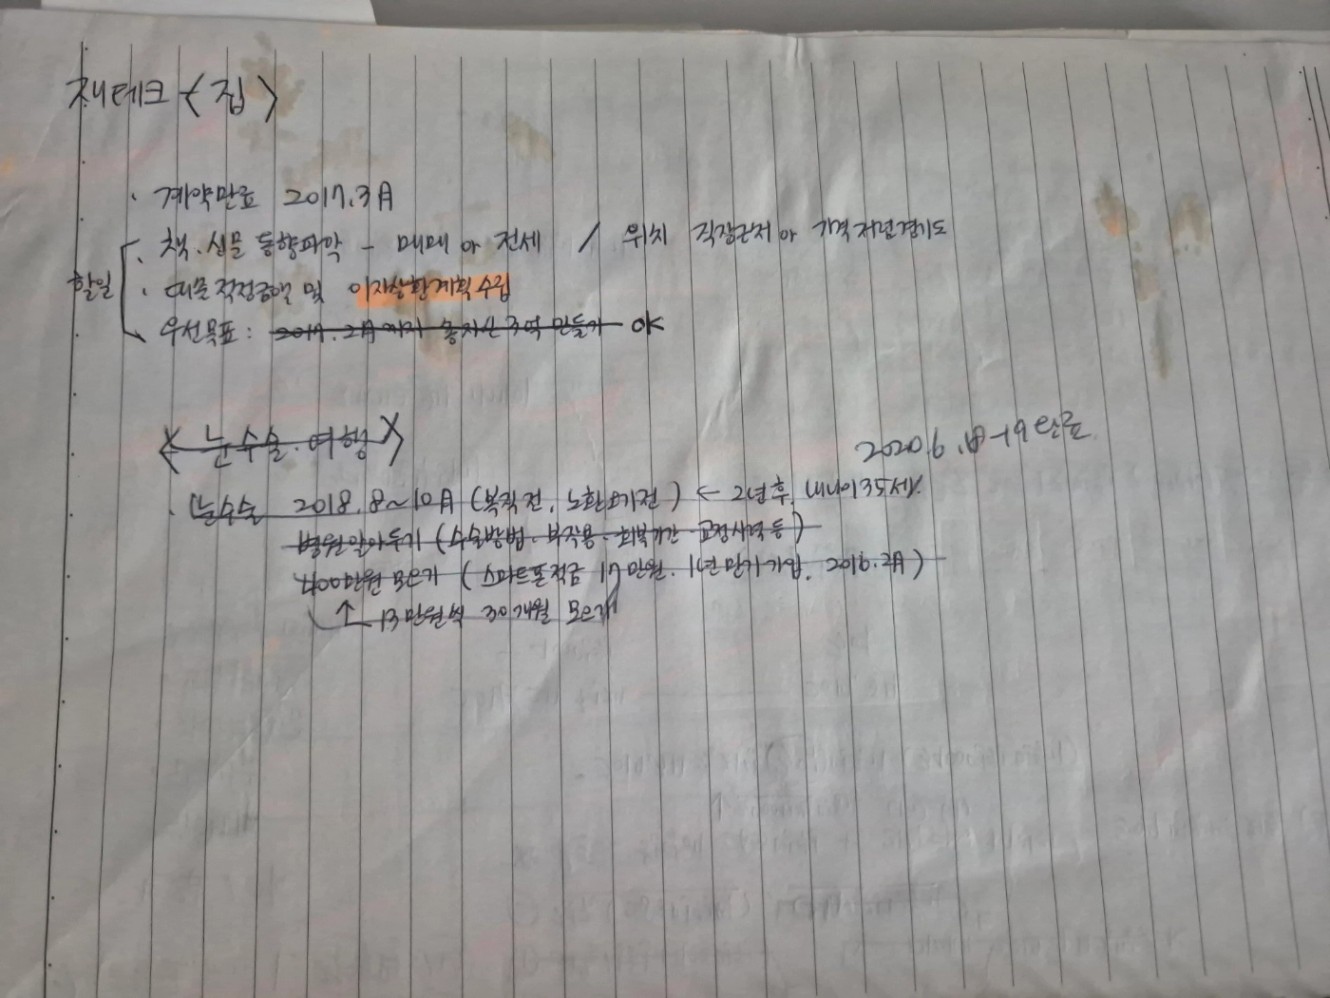 재테크 <집>
· 계약만료 2017.3月
할일
· 책.신문 동향파악 - 매매 or 전세 / 위치 직장근처 or 가격저렴경기도
· 대출적정금액 및 이자상환계획수립
우선목표 : 2017.2月까지 총자산 3억 만들기 OK
< 눈수술.여행 >
2020.6.18-19완료
· 눈수술 2018.8~10月 (복직전, 노환오기전) ← 2년후, 내나이35세
병원알아두기 (수술방법. 부작용. 회복기간. 교정시력 등)
400만원 모으기 (스마트폰적금 17만원. 1년만기가입. 2016.2月)
↑ 13만원씩 30개월 모으기